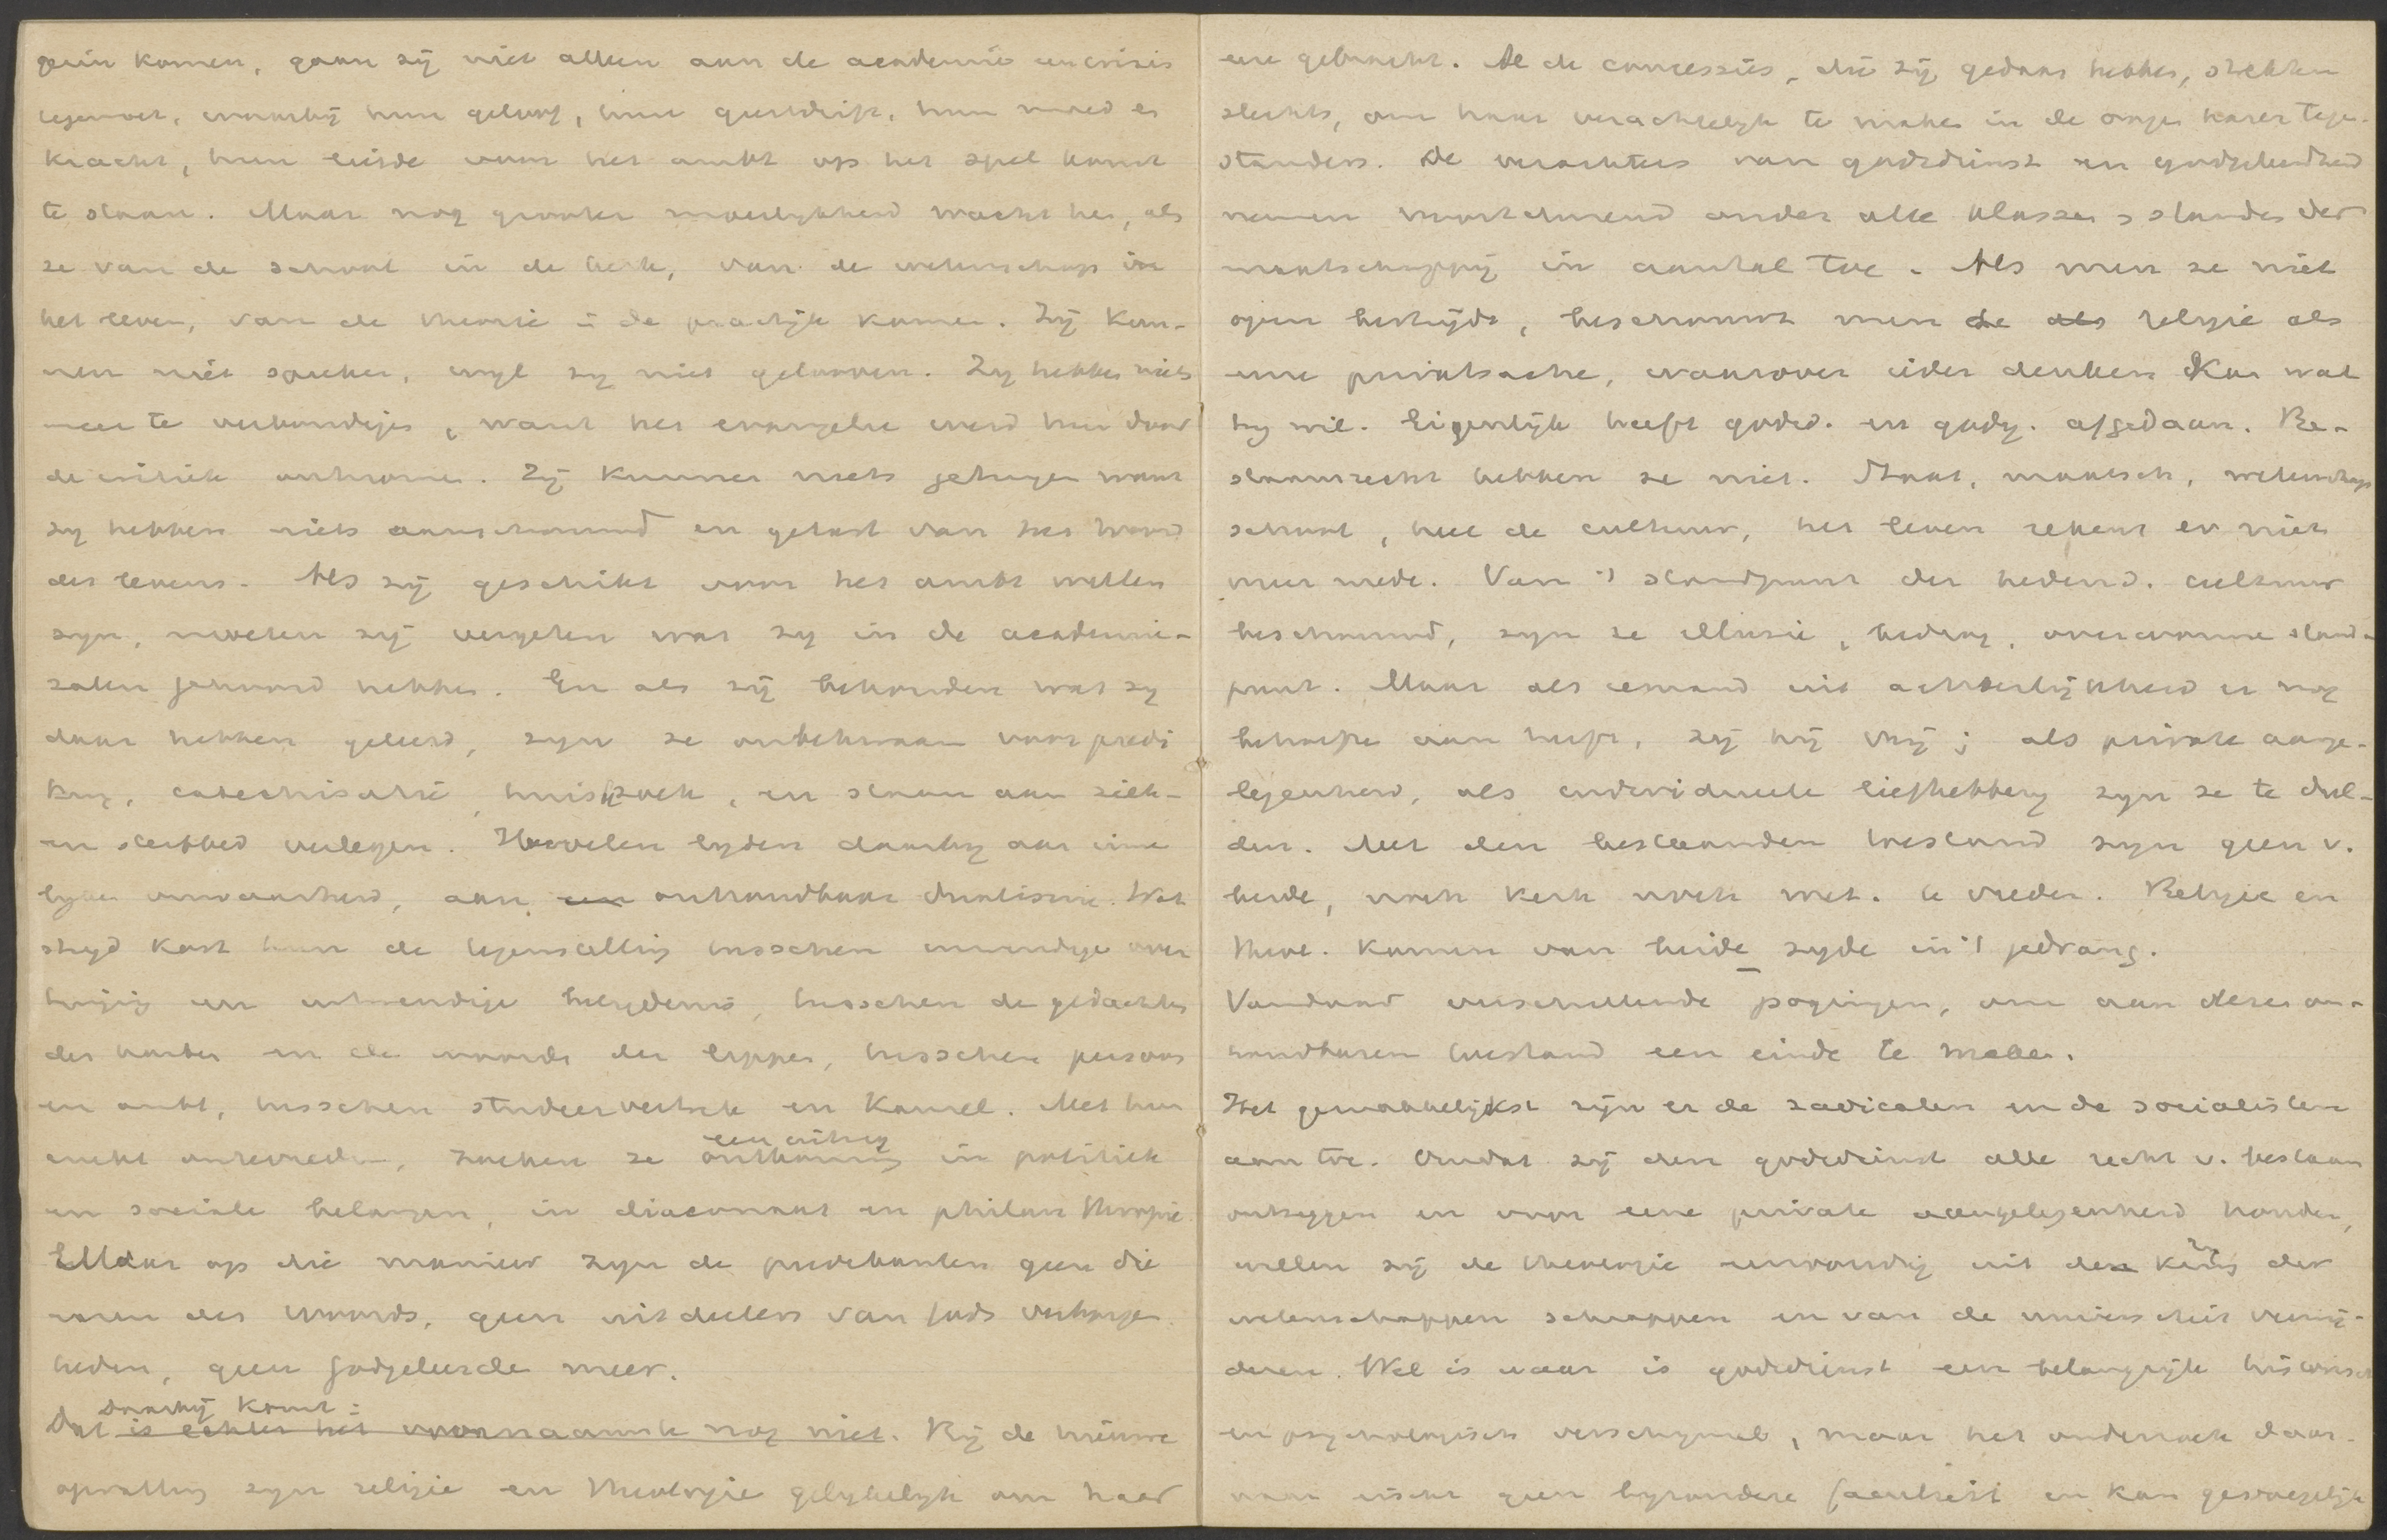 komen, gaan zij niet alleen aan de academie een crisis
tegemoet, waarbij hun geloof, hun geestdrift, hun moed en
kracht, hun liefde voor het ambt op het spel komt
te staan. Maar nog grooter moeilijkheid wacht hen, als
ze van de school in de kerk, van de wetenschap in
het leven, van de theorie in de practijk komen. Zij kun-
nen niet spreken, wijl zij niet gelooven. Zij hebben niets
meer te verkondigen, want het evangelie werd hun door
de critiek ontnomen. Zij kunnen niets getuigen want
zij hebben niets aanschouwd en getast van het Woord
des levens. Als zij geschikt voor het ambt willen
zijn, moeten zij vergeten wat zij in de academie-
zalen gehoord hebben. En als zij behouden wat zij
daar hebben geleerd, zijn ze onbekwaam voor predi
king, catechisatie, huisbezoek, en staan aan ziek-
en sterfbed verlegen. Hoevelen lijden daarbij aan inner
lijke onwaarheid, aan een onhoudbaar dualisme. Wat
strijd kost hun de tegenstelling tusschen inwendige over
tuiging en uitwendige belijdenis, tusschen de gedachten
des harten en de woorden der lippen, tusschen persoon
en ambt, tusschen studeervertrek en kansel. Met hun
ambt ontevreden, zoeken ze
een uitweg
in politiek
en sociale belangen, in diaconaat en philanthropie.
Maar op die manier zijn de predikanten geen die
naren des Woords, geen uitdeelers van Gods verborgen
heden, geen godgeleerde meer.
Daarbij komt:
Dat is echter het voornaamste nog niet. Bij de nieuwe
opvatting zijn religie en theologie gelijkelijk om haar
eere gebracht. Al de concessies, die zij gedaan hebben, strekken
slechts, om haar verachtelijk te maken in de oogen harer tegen-
standers. De verachters van godsdienst en godgeleerdheid
nemen voortdurend onder alle klassen en standen der
maatschappij in aantal toe. Als men ze niet
open bestrijdt, beschouwt men de als religie als
eene privatsache, waarover ieder denken kan wat
hij wil. Eigenlijk heeft godsd. en godg. afgedaan. Be-
staansrecht hebben ze niet. Staat, maatsch., wetenschap
school, heel de cultuur, het leven rekent er niet
meer mede. Van 't standpunt der hedend. cultuur
beschouwd, zijn ze illusie, bedrog, overwonnen stand-
punt. Maar als iemand uit achterlijkheid er nog
behoefte aan heeft, zij hij vrij; als private aange-
legenheid, als individueele liefhebberij zijn ze te dul-
den. Met den bestaanden toestand zijn geen v.
beide, noch kerk noch wet. te vreden. Religie en
theol. komen van beide zijde in 't gedrang.
Vandaar verschillende pogingen, om aan dezen on-
houdbaren toestand een einde te maken.
Het gemakkelijkst zijn er de radicalen en de socialisten
aan toe. Omdat zij den godsdienst alle recht v. bestaan
ontzeggen en voor eene private aangelegenheid houden,
willen zij de theologie eenvoudig uit den kring der
wetenschappen schrappen en van de universiteit verwij-
deren. Wel is waar is godsdienst een belangrijk historisch
en psychologisch verschijnsel, maar het onderzoek daar-
van eischt geen bijzondere faculteit en kan gevoegelijk